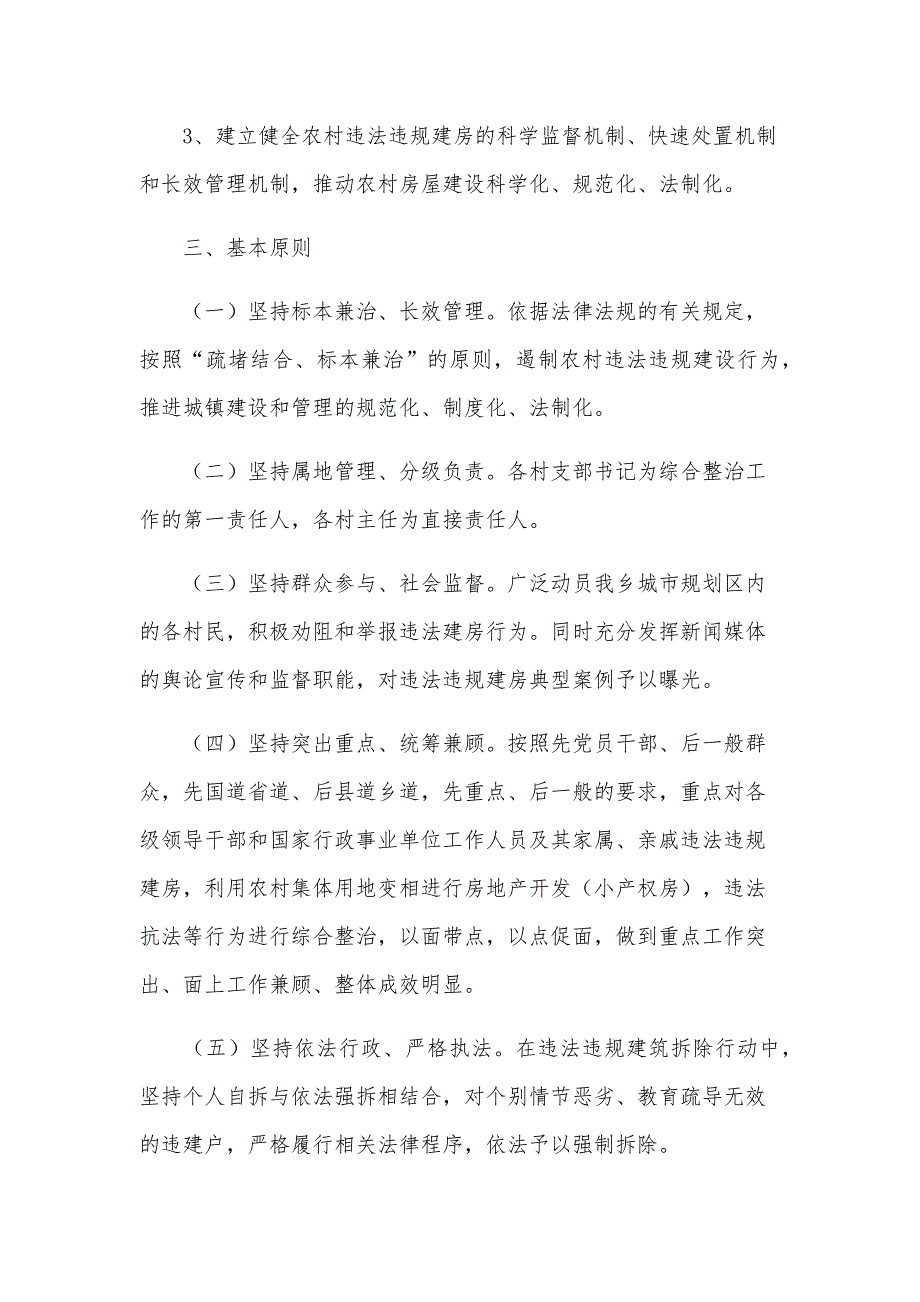 3、建立健全农村违法违规建房的科学监督机制、快速处置机制
和长效管理机制，推动农村房屋建设科学化、规范化、法制化。
三、基本原则
（一）坚持标本兼治、长效管理。依据法律法规的有关规定，
按照“疏堵结合、标本兼治”的原则，遏制农村违法违规建设行为，
推进城镇建设和管理的规范化、制度化、法制化。
（二）坚持属地管理、分级负责。各村支部书记为综合整治工
作的第一责任人，各村主任为直接责任人。
（三）坚持群众参与、社会监督。广泛动员我乡城市规划区内
的各村民，积极劝阻和举报违法建房行为。同时充分发挥新闻媒体
的舆论宣传和监督职能，对违法违规建房典型案例予以曝光。
（四）坚持突出重点、统筹兼顾。按照先党员干部、后一般群
众，先国道省道、后县道乡道，先重点、后一般的要求，重点对各
级领导干部和国家行政事业单位工作人员及其家属、亲戚违法违规
建房，利用农村集体用地变相进行房地产开发（小产权房），违法
抗法等行为进行综合整治，以面带点，以点促面，做到重点工作突
出、面上工作兼顾、整体成效明显。
（五）坚持依法行政、严格执法。在违法违规建筑拆除行动中，
坚持个人自拆与依法强拆相结合，对个别情节恶劣、教育疏导无效
的违建户，严格履行相关法律程序，依法予以强制拆除。